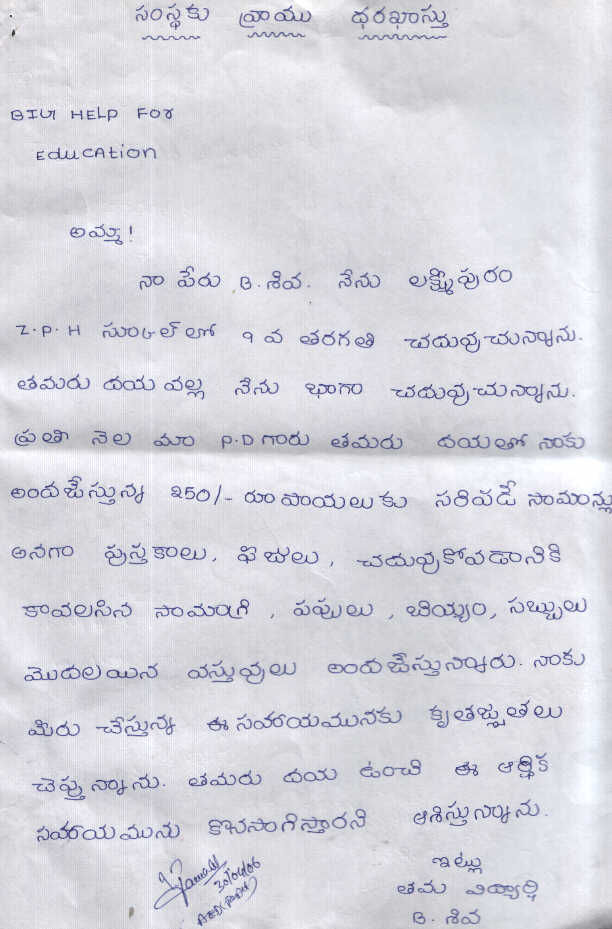 సంస్థకు వ్రాయు ధరఖాస్తు
GIVE HELP FOR
EduCAtion
అమ్మా!
నా పేరు B. శివ. నేను లక్ష్మీపురం
Z.P.H స్కూల్ లో 9 వ తరగతి చదువుచున్నాను.
తమరు దయ వల్ల నేను భాగా చదువుచున్నాను.
ప్రతి నెల మా P.D గారు తమరు దయతో నాకు
అందజేస్తున్న 250/- రూపాయలుకు సరిపడే సామాన్లు
అనగా పుస్తకాలు, ఫీజులు, చదువుకోవడానికి
కావలసిన సామాగ్రి, పప్పులు, బియ్యం, సబ్బులు
మొదలయిన వస్తువులు అందజేస్తున్నారు. నాకు
మీరు చేస్తున్న ఈ సహాయమునకు కృతజ్ఞతలు
చెప్తున్నాను. తమరు దయ ఉంచి ఈ ఆర్థిక
సహాయమును కొనసాగిస్తారని ఆశిస్తున్నాను.
30/04/06
ఇట్లు
తమ విద్యార్థి
B. శివ